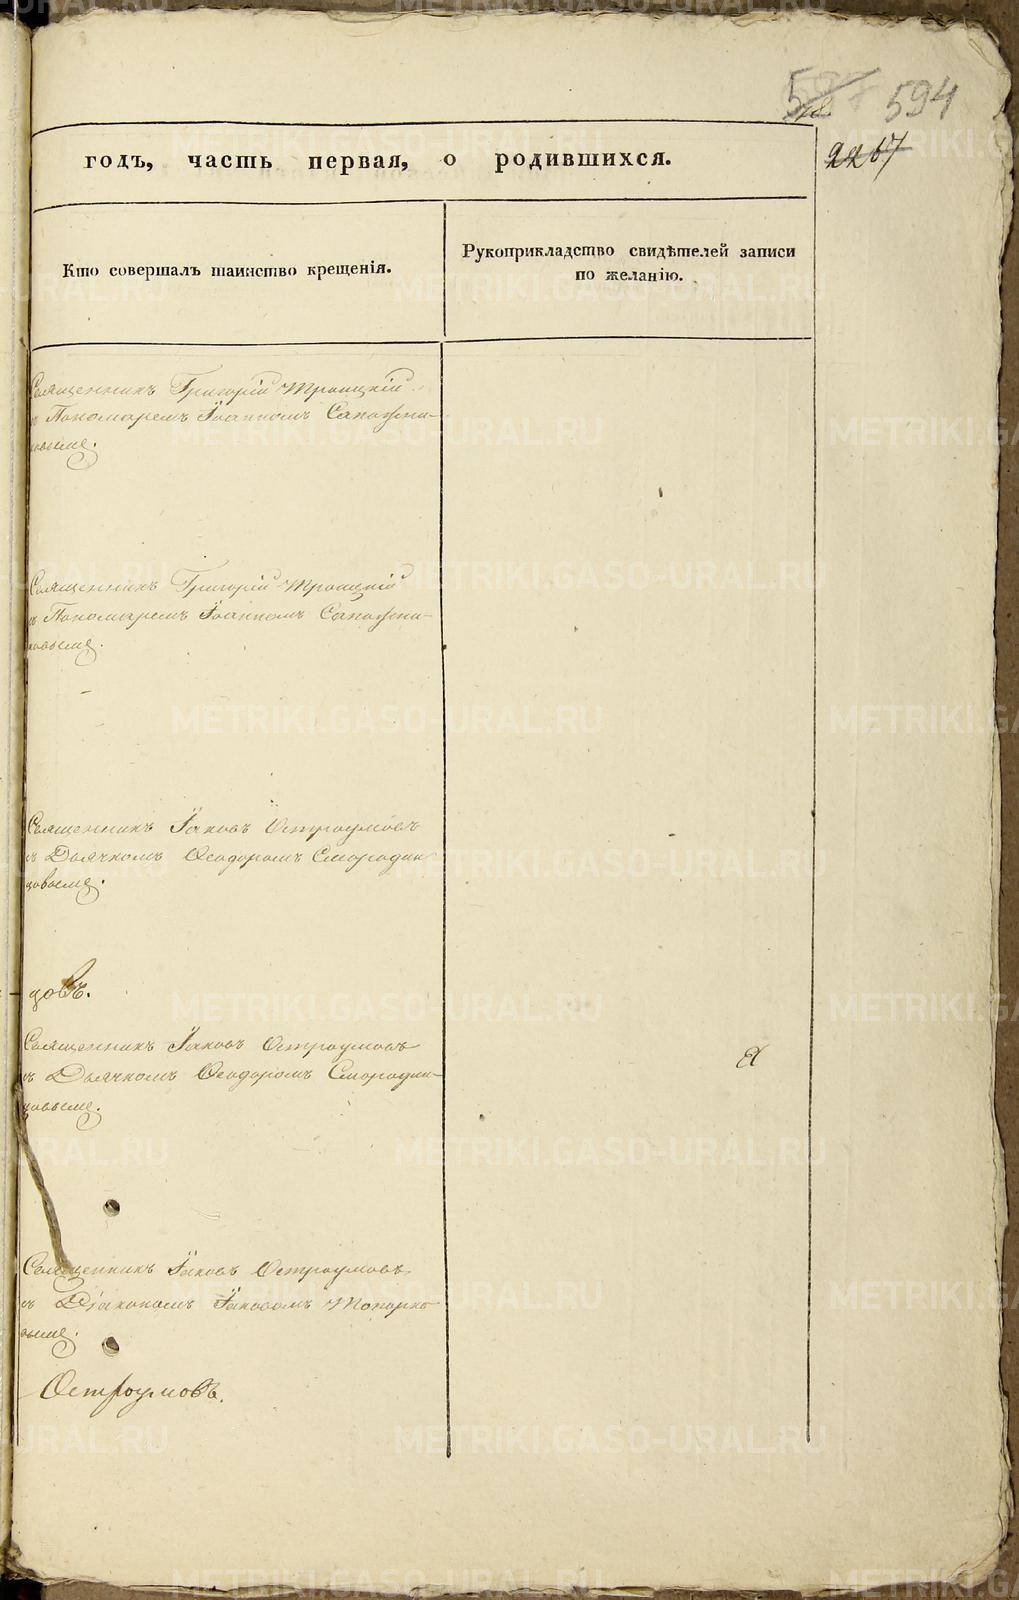 594
2267
годъ, часть первая, о родившихся.
Кто совершалъ таинство крещенія.
Рукоприкладство свидѣтелей записи
по желанію.
Священникъ Григорій Троицкій
съ Пономаремъ Іоанномъ Сапожни-
ковымъ.
Священникъ Григорій Троицкій
съ Пономаремъ Іоанномъ Сапожни-
ковымъ.
Священникъ Іаковъ Остроумовъ
съ Дьячкомъ Ѳеодоромъ Смородин
цовымъ.
цовъ.
Священникъ Іаковъ Остроумовъ
съ Дьячкомъ Ѳеодоромъ Смородин-
цовымъ.
Священникъ Іаковъ Остроумовъ
съ Діакономъ Іаковомъ Топорко
вымъ.
Остроумовъ.
METRIKI.GASO-URAL.RU